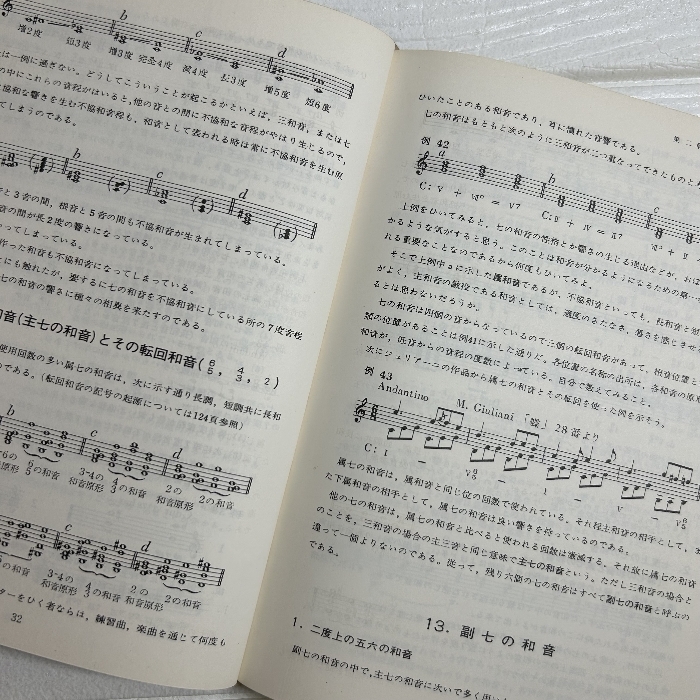 b c d
増2度 短3度 増3度 完全4度 減4度 長3度 増5度 短6度
は一例に過ぎない。どうしてこういうことが起こるかといえば、三和音、または七
の中にこれらの音程がはいると、他の音との間に不協和な音程がやはり生じるので、
協和な響きを生む不協和音程も、和音として表われる時は常に不協和音を生む原
てしまうのである。
b c d
と3音の間、根音と5音の間も不協和音が生まれてしまっている。
音の間が長2度の響きになっている。
ってしまっている。
作った和音も不協和音になってしまっている。
にも触れたが、要するに七の和音を不協和音にしている所の7度音程
七の和音の響きに種々の相異を来たすのである。
和音(主七の和音)とその転回和音(6/5, 4/3, 2)
使用回数の多い属七の和音は、次に示す通り長調、短調共に長和
のである。(転回和音の記号の起源については124頁参照)
b c d
6の 6/5の和音 3-4の 4/3の和音 2の 2の和音
和音原形 和音原形 和音原形
c d
3-4の 4/3の和音 2の 2の和音
和音原形 和音原形
ターをひく者ならば、練習曲、楽曲を通じて何度も
32
ひいたことのある和音であり、耳に慣れた音響である。
七の和音はもともと次のように三和音が二つ重なってできたものと
例 42
a b c
C: V + VII° = V7 C: II + IV = II7
上例をひいてみると、七の和音の性格とか響きの生じる理由などが、おぼ
かるような気がすると思う。このことは和音が分かるようになるための最
れる重要なことなのであるから何度もひいてみよ。
そこで上例中aに示した属和音であるが、不協和音といっても、長和音と短
がよく、主和音の敵役である和音としては、適度のさなたさ、悪さを感じさせ
るとは思わないだろうか。
七の和音は四個の音からなっているので三個の転回和音があって、根音位置と
類の位置があることは例41に示した通りだ。各位置の名称の出所は、各和音の原形
和音が、低音からの音程の度数によっている。自分で数えてみること。
次にジュリアーニの作品から属七の和音とその転回を使った例を示そう。
例 43
Andantino M. Giuliani 「蝶」28番より
C: I – V6/5 – I – V – V6/5
属七の和音は、属和音と同じ位の回数で使われている。それ程主和音の相手として、ま
た下属和音の相手として、属七の和音は良い響きを持っているのである。
他の七の和音は、属七の和音と比べると使われる回数は激減する。それ故に属七の和音
のことを、三和音の場合の主三音と同じ意味で主七の和音という。ただし三和音の場合と
違って一個よりないのである。従って、残り六個の七の和音はすべて副七の和音と呼ぶの
である。
13. 副七の和音
1. 二度上の五六の和音
副七の和音の中で、主七の和音に次いで多く用い